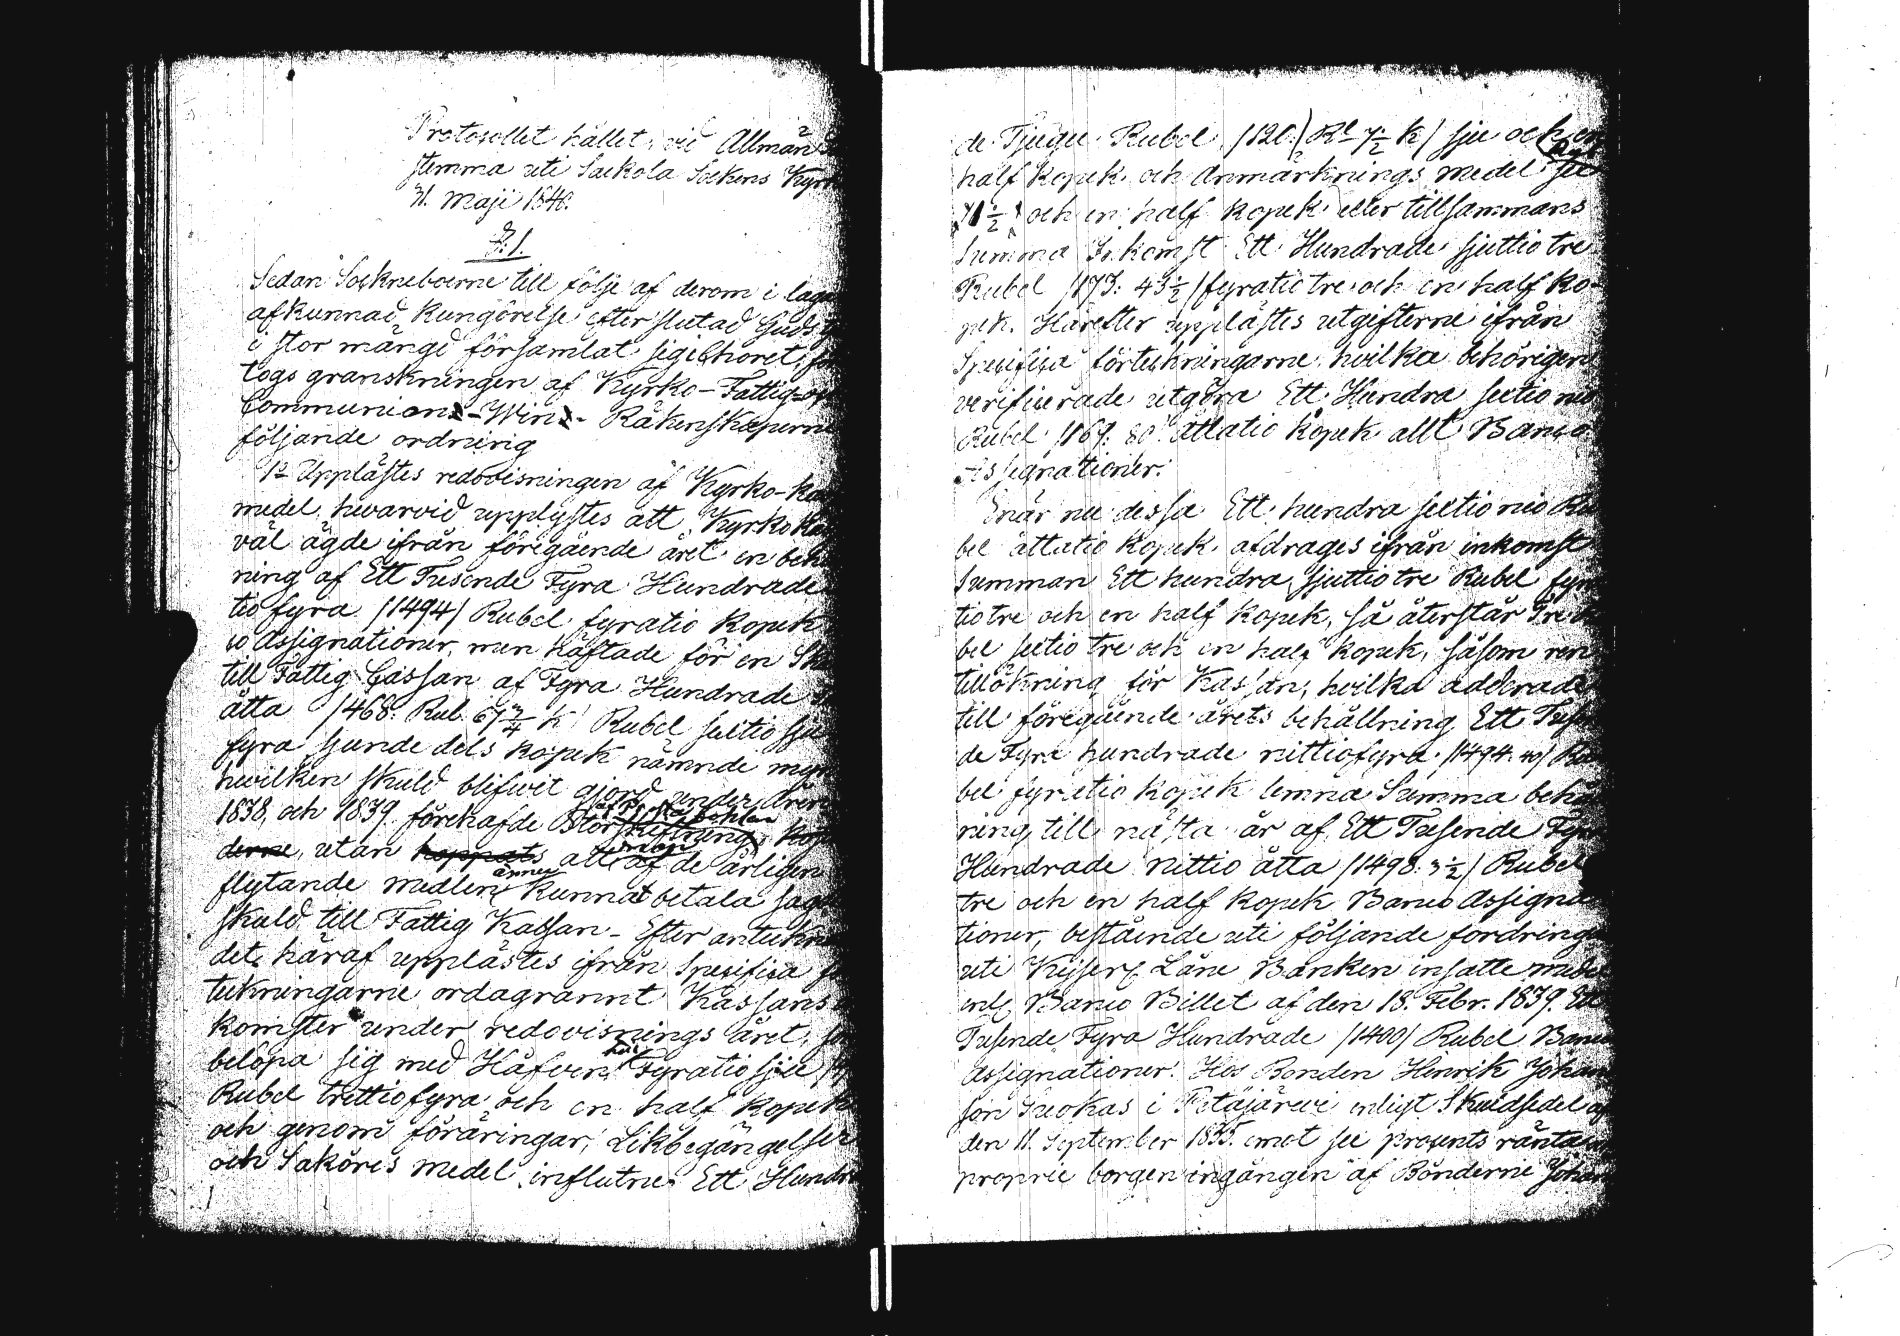 Protocollet hållet, vid Allmän
stemma uti Sackola Sockens Kyrk
31. Maji 1840.
§: 1.
Sedan Sockneboerne till följe af derom i laga
afkunnad Kungörelse efter slutad Guds
i stor mängd församlat sig i Choret, för
togs granskningen af Kyrko-Fattig-och
Communions-Wins-Räkenskaperne
följande ordning
1o Upplästes redovisningen af Kyrko-Kas
medel, hvarvid upplystes att Kyrko Kas
väl ägde ifrån föregående året en behå
ning af Ett Tusende Fyra Hundrade
tio fyra /1494/ Rubel fyratio Kopek
co Assignationer, men häftade för en Sku
till Fattig Cassan af Fyra Hundrade
åtta /468: Rub. 67 4/7 K/ Rubel sextio sju
fyra sjunde dels Kopek nämnde myn
hvilken skuld blifvit gjord under åren
1838, och 1839. förehafde Storskiftning,
derne, utan hoppats att af de årligen
flytande medlen ännu kunnat betala sagde
skuld till Fattig Kassan - Efter anteckna
det, häraf upplästes ifrån Specifica för
teckningarne ordagrannt Kassans
komster under redovisnings året, som
belöpa sig med Håfven till Fyratio sju
Rubel trettiofyra och en half Kopek
och genom föräringar, Likbegängelser
och Saköres medel influtne Ett Hundra
de Tjugu Rubel /120. Rl 7 1/2 K/ sju och en
half Kopek och Anmärknings medel
och en half Kopek eller tillsammans
Summa Inkomst Ett Hundrade sjuttio tre
Rubel /173: 43 1/2/ fyratio tre och en half Ko-
pek. Härefter upplästes utgifterne ifrån
Specifica förteckningarne, hvilka behörigen
verificerade utgöra Ett Hundra sextio nio
Rubel /169: 80/ åttatio Kopek allt Banco
Assignationer.
Enär nu dessa Ett hundra sextio nio Ru
bel åttatio Kopek afdrages ifrån inkomst
Summan Ett hundra sjuttio tre Rubel fyra
tio tre och en half Kopek, så återstår Tre Ru
bel sextio tre och en half Kopek, såsom ren
tillökning för Kassan, hvilka adderade
till föregående årets behållning Ett Tusen
de Fyra hundrade nittiofyra /1494. 40/ Ru
bel fyratio Kopek lemna Summa behåll
ning till nästa år af Ett Tusende Fyra
Hundrade nittio åtta /1498: 3 1/2/ Rubel
tre och en half Kopek Banco Assigna
tioner, bestående uti följande fordringar
uti Kejserl. Låne Banken insatte medel
enl. Banco Billet af den 18. Febr. 1839. Ett
Tusende Fyra Hundrade /1400/ Rubel Banco
Assignationer. Hos Bonden Henrik Johans
son Suokas i Petäjärvi enligt Skuldsedel af
den 11. September 1835. emot sex procents ränta
proprie borgen ingången af Bönderne Johan